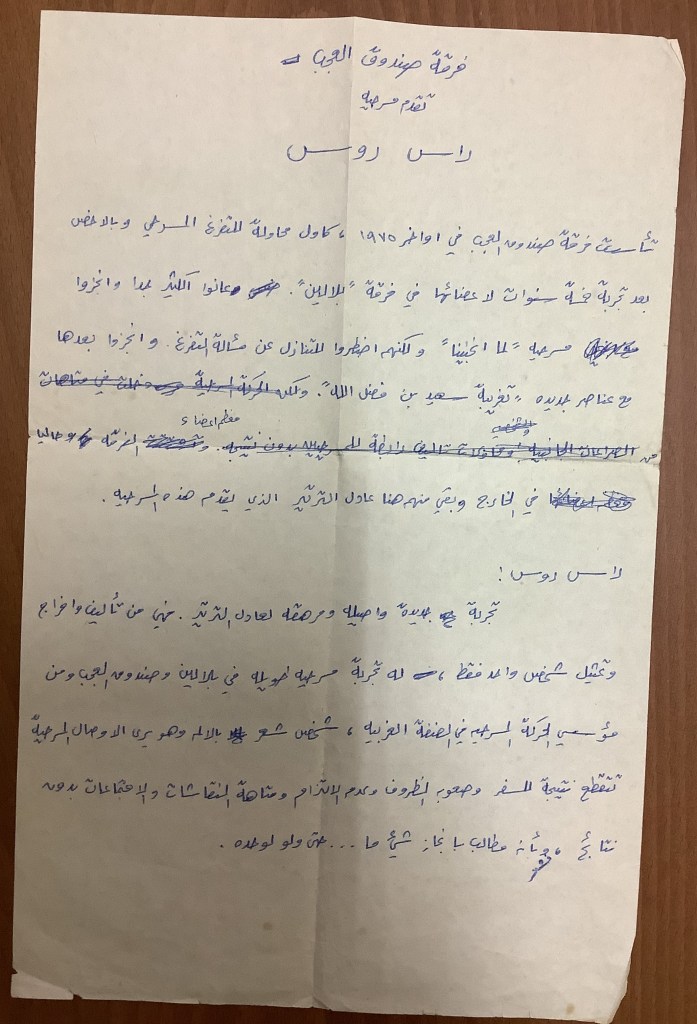 فرقة صندوق العجب
تقدم مسرحيه
راس روس
تأسست فرقة صندوق العجب في اواخر ١٩٧٥ ، كاول محاولة للتفرغ المسرحي وبالاخص
بعد تجربة خمسة سنوات لاعضائها في فرقة "بلالين". وعانوا الكثير لمدا وانجزوا
مسرحيه "لما انجنينا" ولكنهم اضطروا للتنازل عن مسألة التفرغ . وانجزوا بعدها
مع عناصر جديده "تغريبة سعيد بن فضل الله". ولكن الحركة المسرحية دخلت في متاهات
معظم اعضاء
من الصراعات الجانبيه والشخصيه ومحاولات تأليف رابطة للمسرحيين بدون نتيجه. الفرقة وحاليا
في الخارج وبقي منهم هنا عادل الترتير الذي يقدم هذه المسرحيه .
راس روس :
تجربة جديدة واصيله ومرهقه لعادل الترتير . فهي من تأليف واخراج
وتمثيل شخص واحد فقط ، له تجربة مسرحيه طويله في بلالين وصندوق العجب ومن
مؤسسي الحركة المسرحيه في الضفة الغربيه ، شخص شعر بالالم وهو يرى الاوصال المسرحية
تتقطع نتيجة للسفر وصعوبه الظروف وعدم الالتزام ومتاهة النقاشات والاجتماعات بدون
نتائج ، وبأنه مطالب بانجاز شيئ ما ... حتى ولو لوحده .